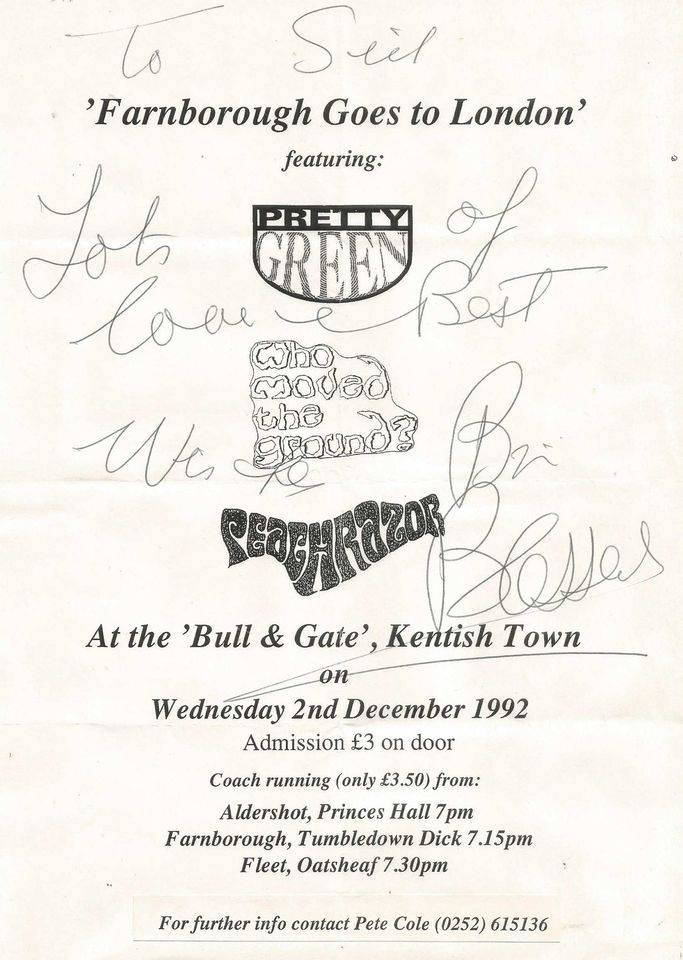 To
'Farnborough Goes to London'
featuring:
Lots of
PRETTY
GREEN
love Best
who
moved
the
ground?
Bri
PEACHRAZOR
Blessed
At the 'Bull & Gate', Kentish Town
on
Wednesday 2nd December 1992
Admission £3 on door
Coach running (only £3.50) from:
Aldershot, Princes Hall 7pm
Farnborough, Tumbledown Dick 7.15pm
Fleet, Oatsheaf 7.30pm
For further info contact Pete Cole (0252) 615136